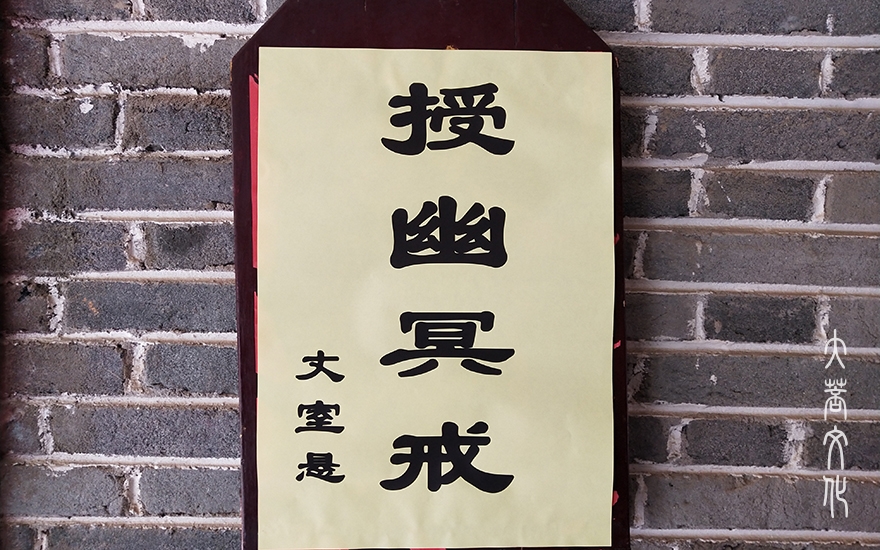 授幽冥戒
丈室悬
大菩文化